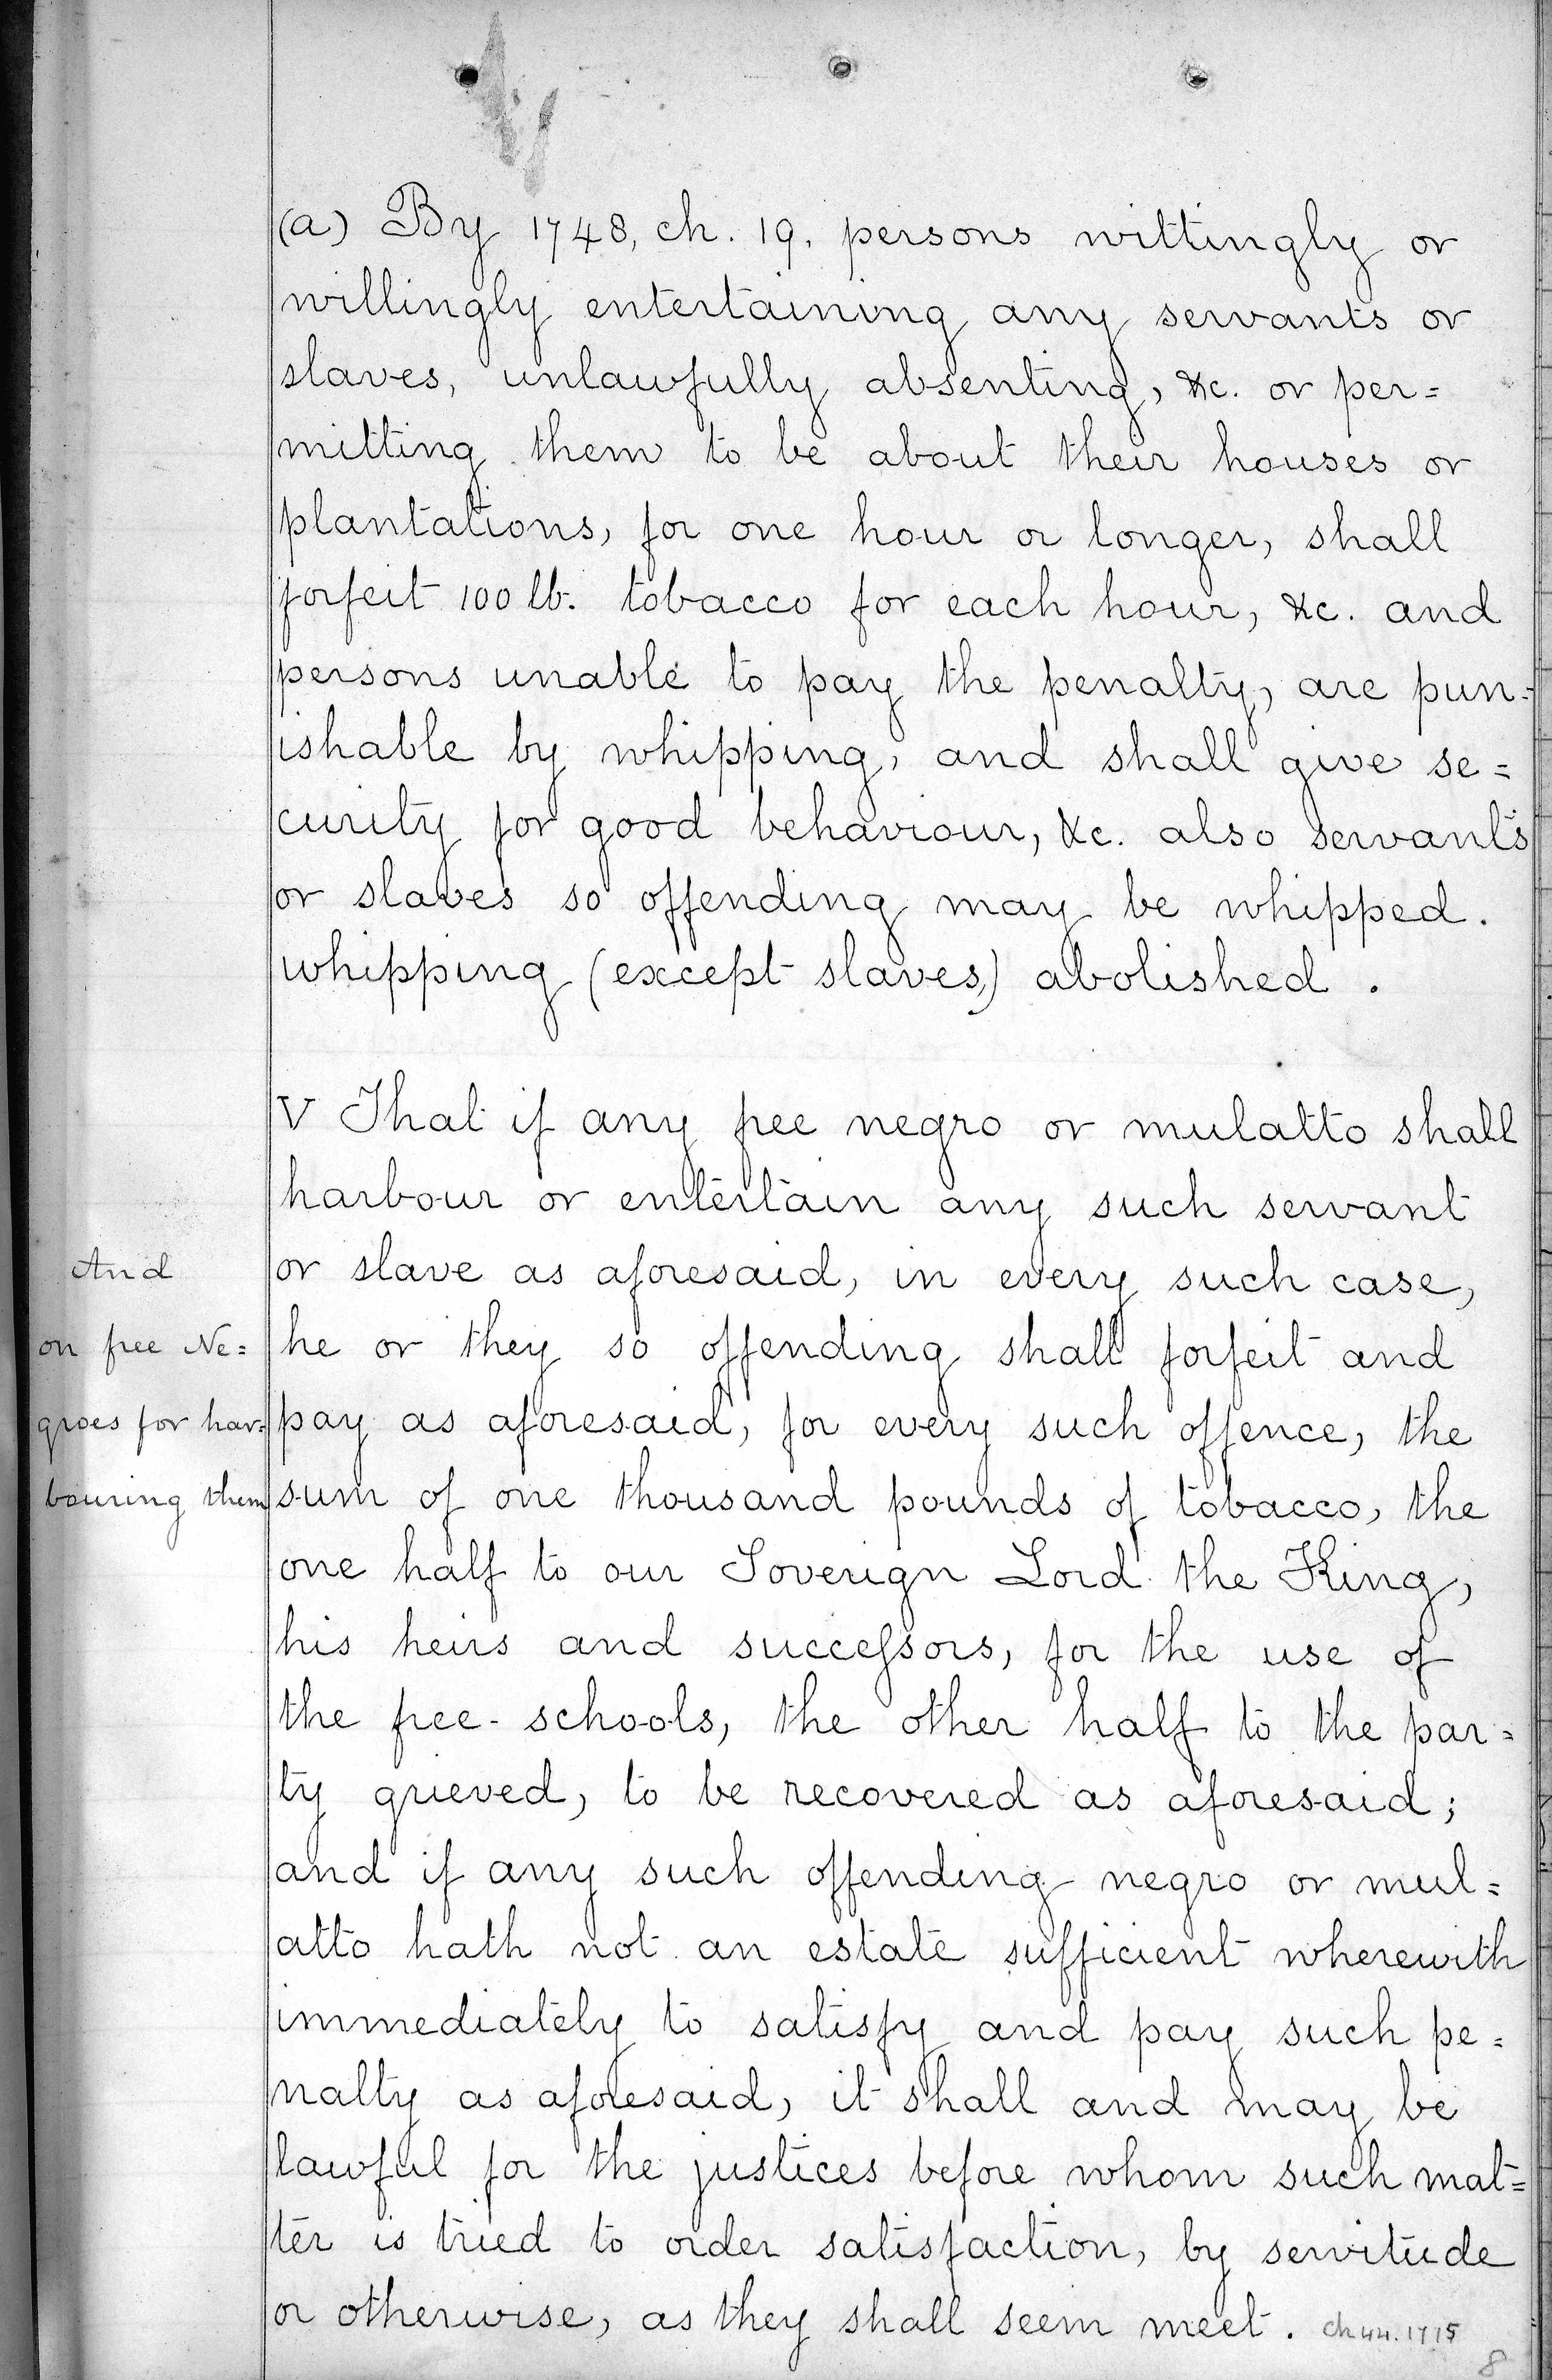 (a) By 1748, ch. 19. persons wittingly or
willingly entertaining any servants or
slaves, unlawfully absenting, &c. or per=
mitting them to be about their houses or
plantations, for one hour or longer, shall
forfeit 100 lb. tobacco for each hour, &c. and
persons unable to pay the penalty, are pun=
ishable by whipping, and shall give se=
curity for good behaviour, &c. also servants
or slaves so offending may be whipped.
whipping (except slaves,) abolished .
V That if any free negro or mulatto shall
harbour or entertain any such servant
or slave as aforesaid, in every such case,
he or they so offending shall forfeit and
pay as aforesaid, for every such offence, the
sum of one thousand pounds of tobacco, the
one half to our Soverign Lord the King,
his heirs and successors, for the use of
the free-schools, the other half to the par=
ty grieved, to be recovered as aforesaid;
and if any such offending negro or mul=
atto hath not an estate sufficient wherewith
immediately to satisfy and pay such pe=
nalty as aforesaid, it shall and may be
lawful for the justices before whom such mat=
ter is tried to order satisfaction, by servitude
or otherwise, as they shall seem meet. ch 44. 1715
And
on free Ne=
groes for har=
bouring them
8